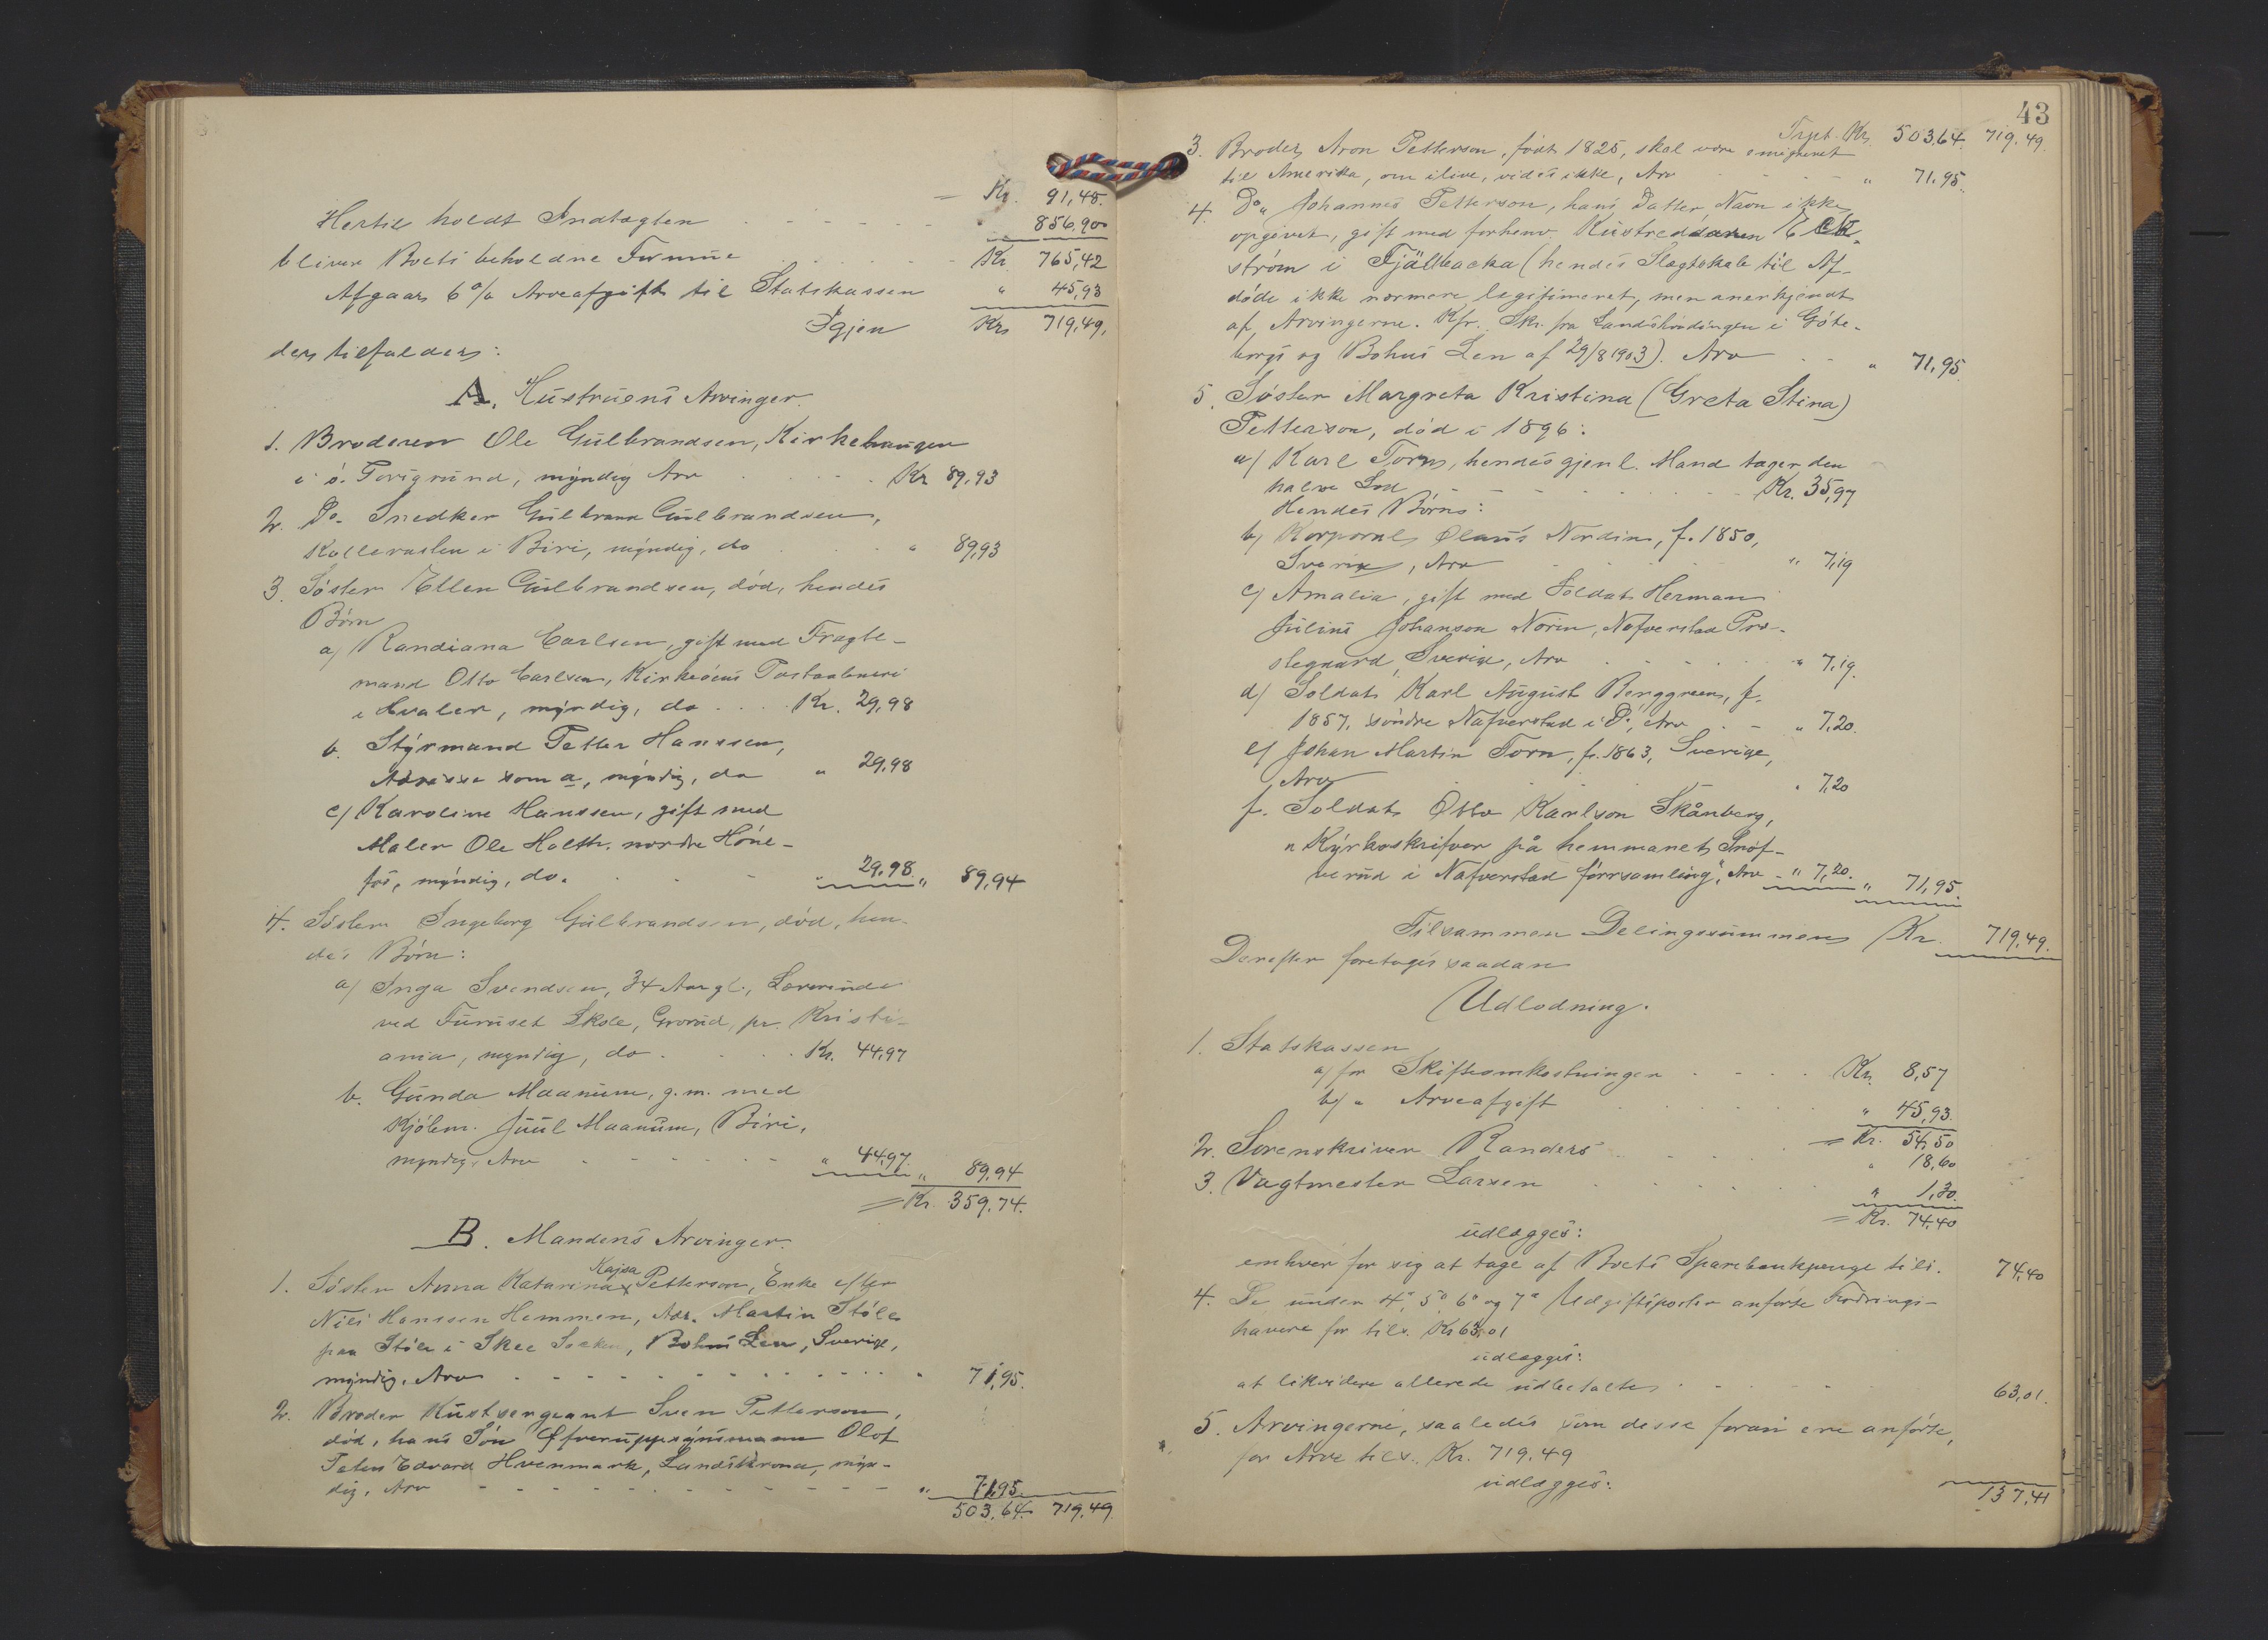 = Kr. 91,48.
Hertil holdt Indtægten - - - - " 856,90
bliver Boets beholdne Formue . . . . Kr 765,42
Afgaar 6 % Arveafgift til Statskassen " 45,93
Igjen Kr 719,49.
der tilfalder:
A. Hustruens Arvinger.
1. Broderen Ole Gulbrandsen, Kirkehaugen
i ö. Torsgrund, myndig Arv . . . . Kr 89,93
2. Do. Snedker Gulbrand Gulbrandsen,
i Biri, myndig, do . . . " 89,93
3. Söster Ellen Gulbrandsen, död, hendes
Børn
a) Randiana Carlsen, gift med Fragte-
mand Otto Carlsen, Kirkeöens Postaabneri
i Hvaler, myndig, do . . . . Kr. 29,98
b. Styrmand Petter Hanssen,
Adresse som a, myndig, do " 29,98
c) Karoline Hanssen, gift med
Maler Ole Holth. nordre Höne-
fos, myndig, do. . - - - " 29,98. " 89,94
4. Söster Ingeborg Gulbrandsen, död, hen-
des Børn:
a) Inga Svendsen, 34 Aar gl., Lærerinde
ved Furuset Skole, Grorud, pr. Kristi-
ania, myndig, do . . . . . Kr. 44,97
b. Gunda Maanum, g. m. med
Kjölem. Juul Maanum, Biri,
myndig, Arv - - - - - - " 44,97. " 89,94
= Kr. 359,74.
B. Mandens Arvinger.
Kajsa
1. Söster Anna Katarina x Petterson, Enke efter
Nils Hanssen Hemmen, Adr. Martin Stöle
paa Stöle i Skee Socken, Bohus Len, Sverige,
myndig, Arv - - - - - - - - - " 71,95.
2. Broder Kustsergeant Sven Petterson,
död, hans Sön Öfveruppsynsmann Olof
Edvard Hvenmark, Landskrona, myn-
dig, Arv - - - - - - - - - " 71,95
503,64 719,49
43
Trpt. Kr. 503,64. 719,49.
3. Broder Aron Petterson, født 1825, skal være emigreret
til Amerika, om ilive, vides ikke, Arv - - - - " 71,95.
4. Do. Johannes Petterson, hans Datter, Navn ikke
opgivet, gift med forhenv. Kustreddaren E Ek-
ström i Fjällbacka (hendes Slægtskab til Af-
döde ikke nærmere legitimeret, men anerkjendt
af Arvingerne. Kfr. Skr. fra Landshövdingen i Göte-
borgs og Bohus Len af 29/8 1903). Arv . - - " 71,95.
5. Söster Margreta Kristina (Greta Stina)
Petterson, död i 1896:
a/ Karl Torn, hendes gjenl. Mand tager den
halve Lod - - - - - - - - Kr. 35,97
Hendes Börn:
b) Korporal Olaus Nordin, f. 1850,
Sverige, Arv . . . . . " 7,19
c) Amalia, gift med Soldat Herman
Julius Johanson Norin, Nafverstad Pre-
stegaard, Sverige, Arv . . . . . " 7,19.
d) Soldat Karl August Berggreen, f.
1857, söndre Nafverstad i Do, Arv . - - " 7,20.
e) Johan Martin Torn, f. 1863, Sverige,
Arv . . . . " 7,20
f. Soldat Otto Karlson Skånberg,
" Kyrkoskrifver på hemmanet Snöf-
verud i Nafverstad församling", Arv - " 7,20. " 71,95.
Tilsammen Delingssummen Kr. 719,49.
Derefter foretages saadan
Udlodning.
1. Statskassen
a) for Skifteomkostninger - - - . Kr. 8,57
b) " Arveafgift . . . . . " 45,93.
= Kr. 54,50
2. Sorenskriver Randers . . . . " 18,60
3. Vagtmester Larsen . . . . . " 1,30.
= Kr. 74,40
udlægges:
enhver for sig at tage af Boets Sparebankpenge tils. 74,40
4. De under 4o, 5o, 6o og 7o Udgiftsposter anførte Fordrings-
havere for tils. Kr 63,01
udlægges:
at likvidere allerede udbetalte . - . - . - 63,01.
5. Arvingerne, saaledes som disse foran ere anförte,
for Arv tils. Kr. 719,49
udlægges:
137,41